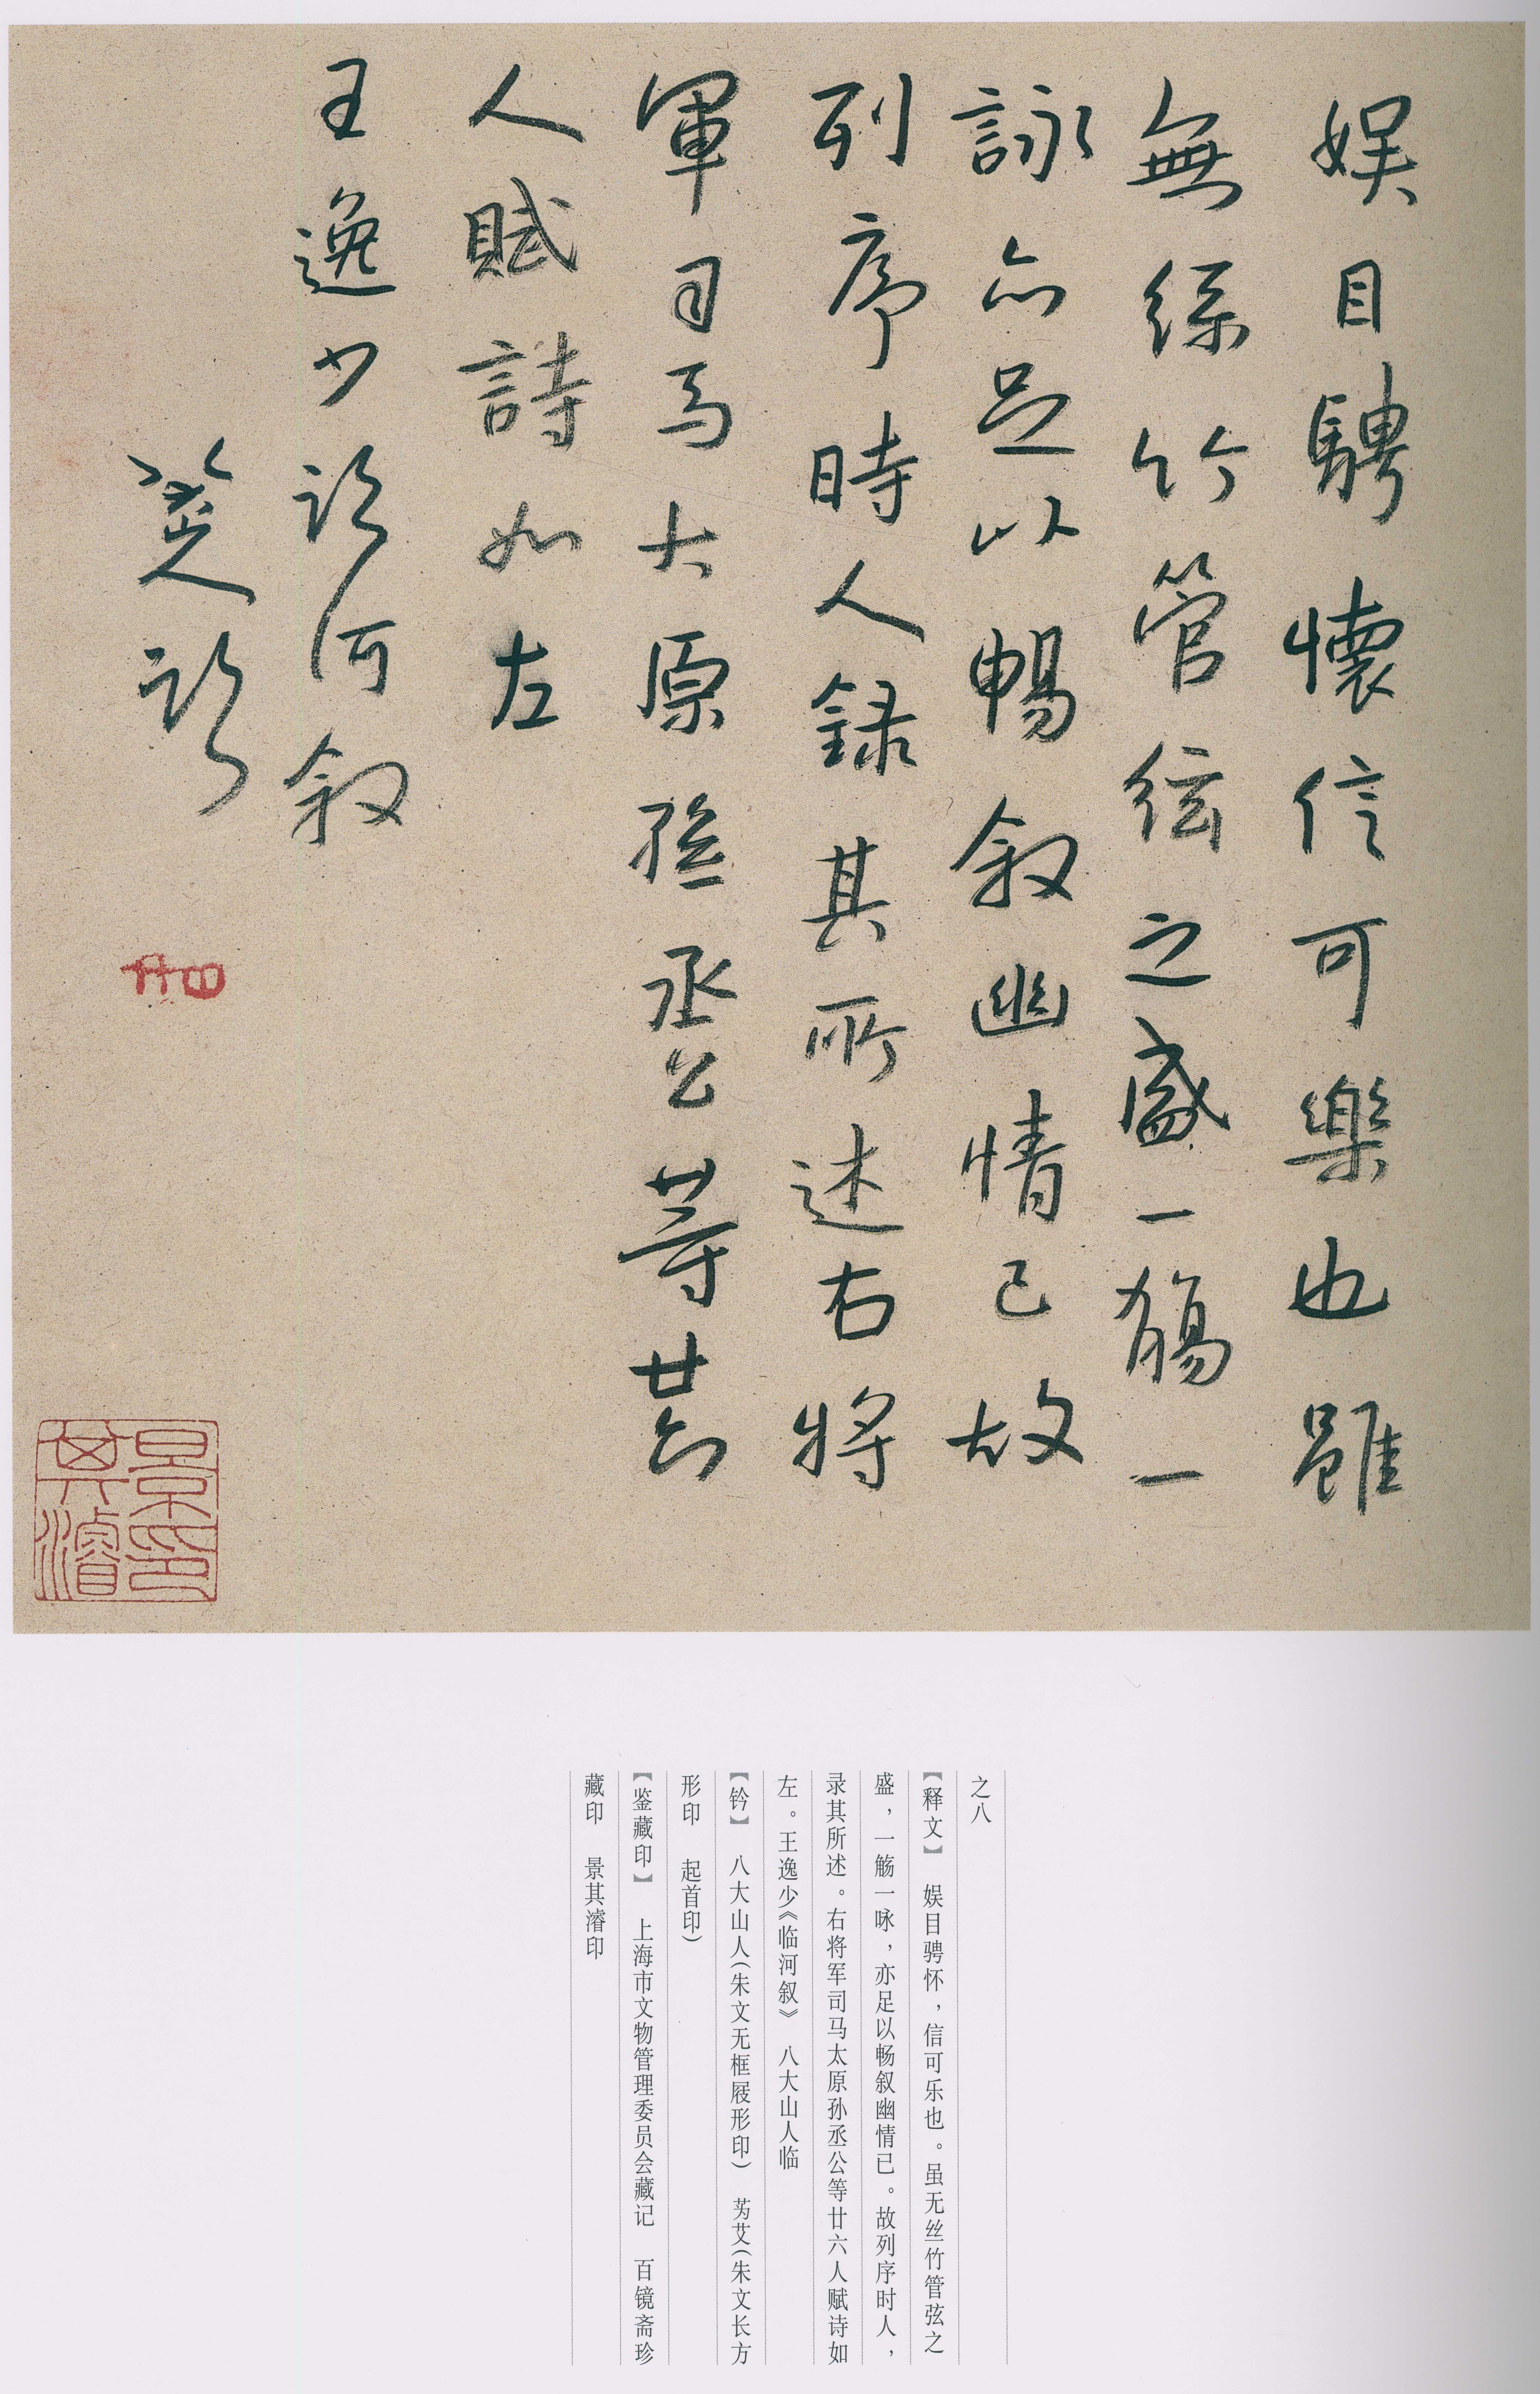 娱目騁懷信可樂也雖
無絲竹管絃之盛一觴一
詠亦足以暢叙幽情已故
列序時人録其所述右將
軍司馬太原孫丞公等廿六
人賦詩如左
王逸少臨河叙
八大山人臨
景其濬印
之八
【释文】 娱目骋怀，信可乐也。虽无丝竹管弦之
盛，一觞一咏，亦足以畅叙幽情已。故列序时人，
录其所述。右将军司马太原孙丞公等廿六人赋诗如
左。王逸少《临河叙》 八大山人临
【钤】 八大山人（朱文无框屐形印） 芴艾（朱文长方
形印 起首印）
【鉴藏印】 上海市文物管理委员会藏记 百镜斋珍
藏印 景其濬印